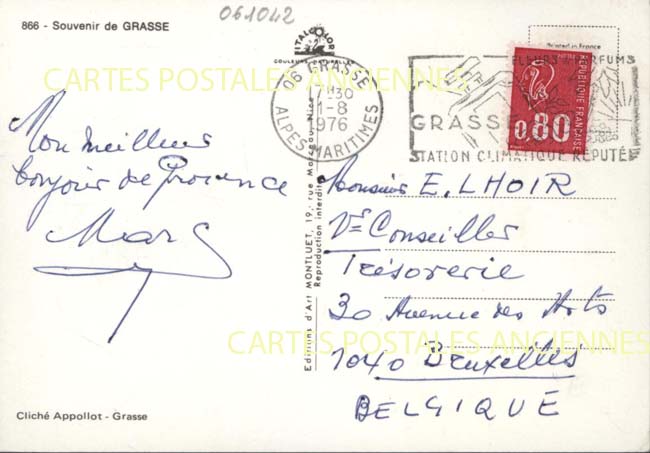 061042
866 - Souvenir de GRASSE
ITALCOLOR
COULEURS NATURELLES
Printed in France
06 GRASSE
17H30
1-8
1976
ALPES-MARITIMES
FLEURS PARFUMS
GRASSE
STATION CLIMATIQUE REPUTÉE
0,80
REPUBLIQUE FRANÇAISE
CARTES POSTALES ANCIENNES
Mon meilleur
bonjour de Provence
Marc
Monsieur E. LHOIR
Vr Conseiller
Trésorerie
30 Avenue des Arts
1040 Bruxelles
BELGIQUE
Editions d'Art MONTLUET, 19, rue Nice
Reproduction interdite
CARTES POSTALES ANCIENNES
Cliché Appollot - Grasse